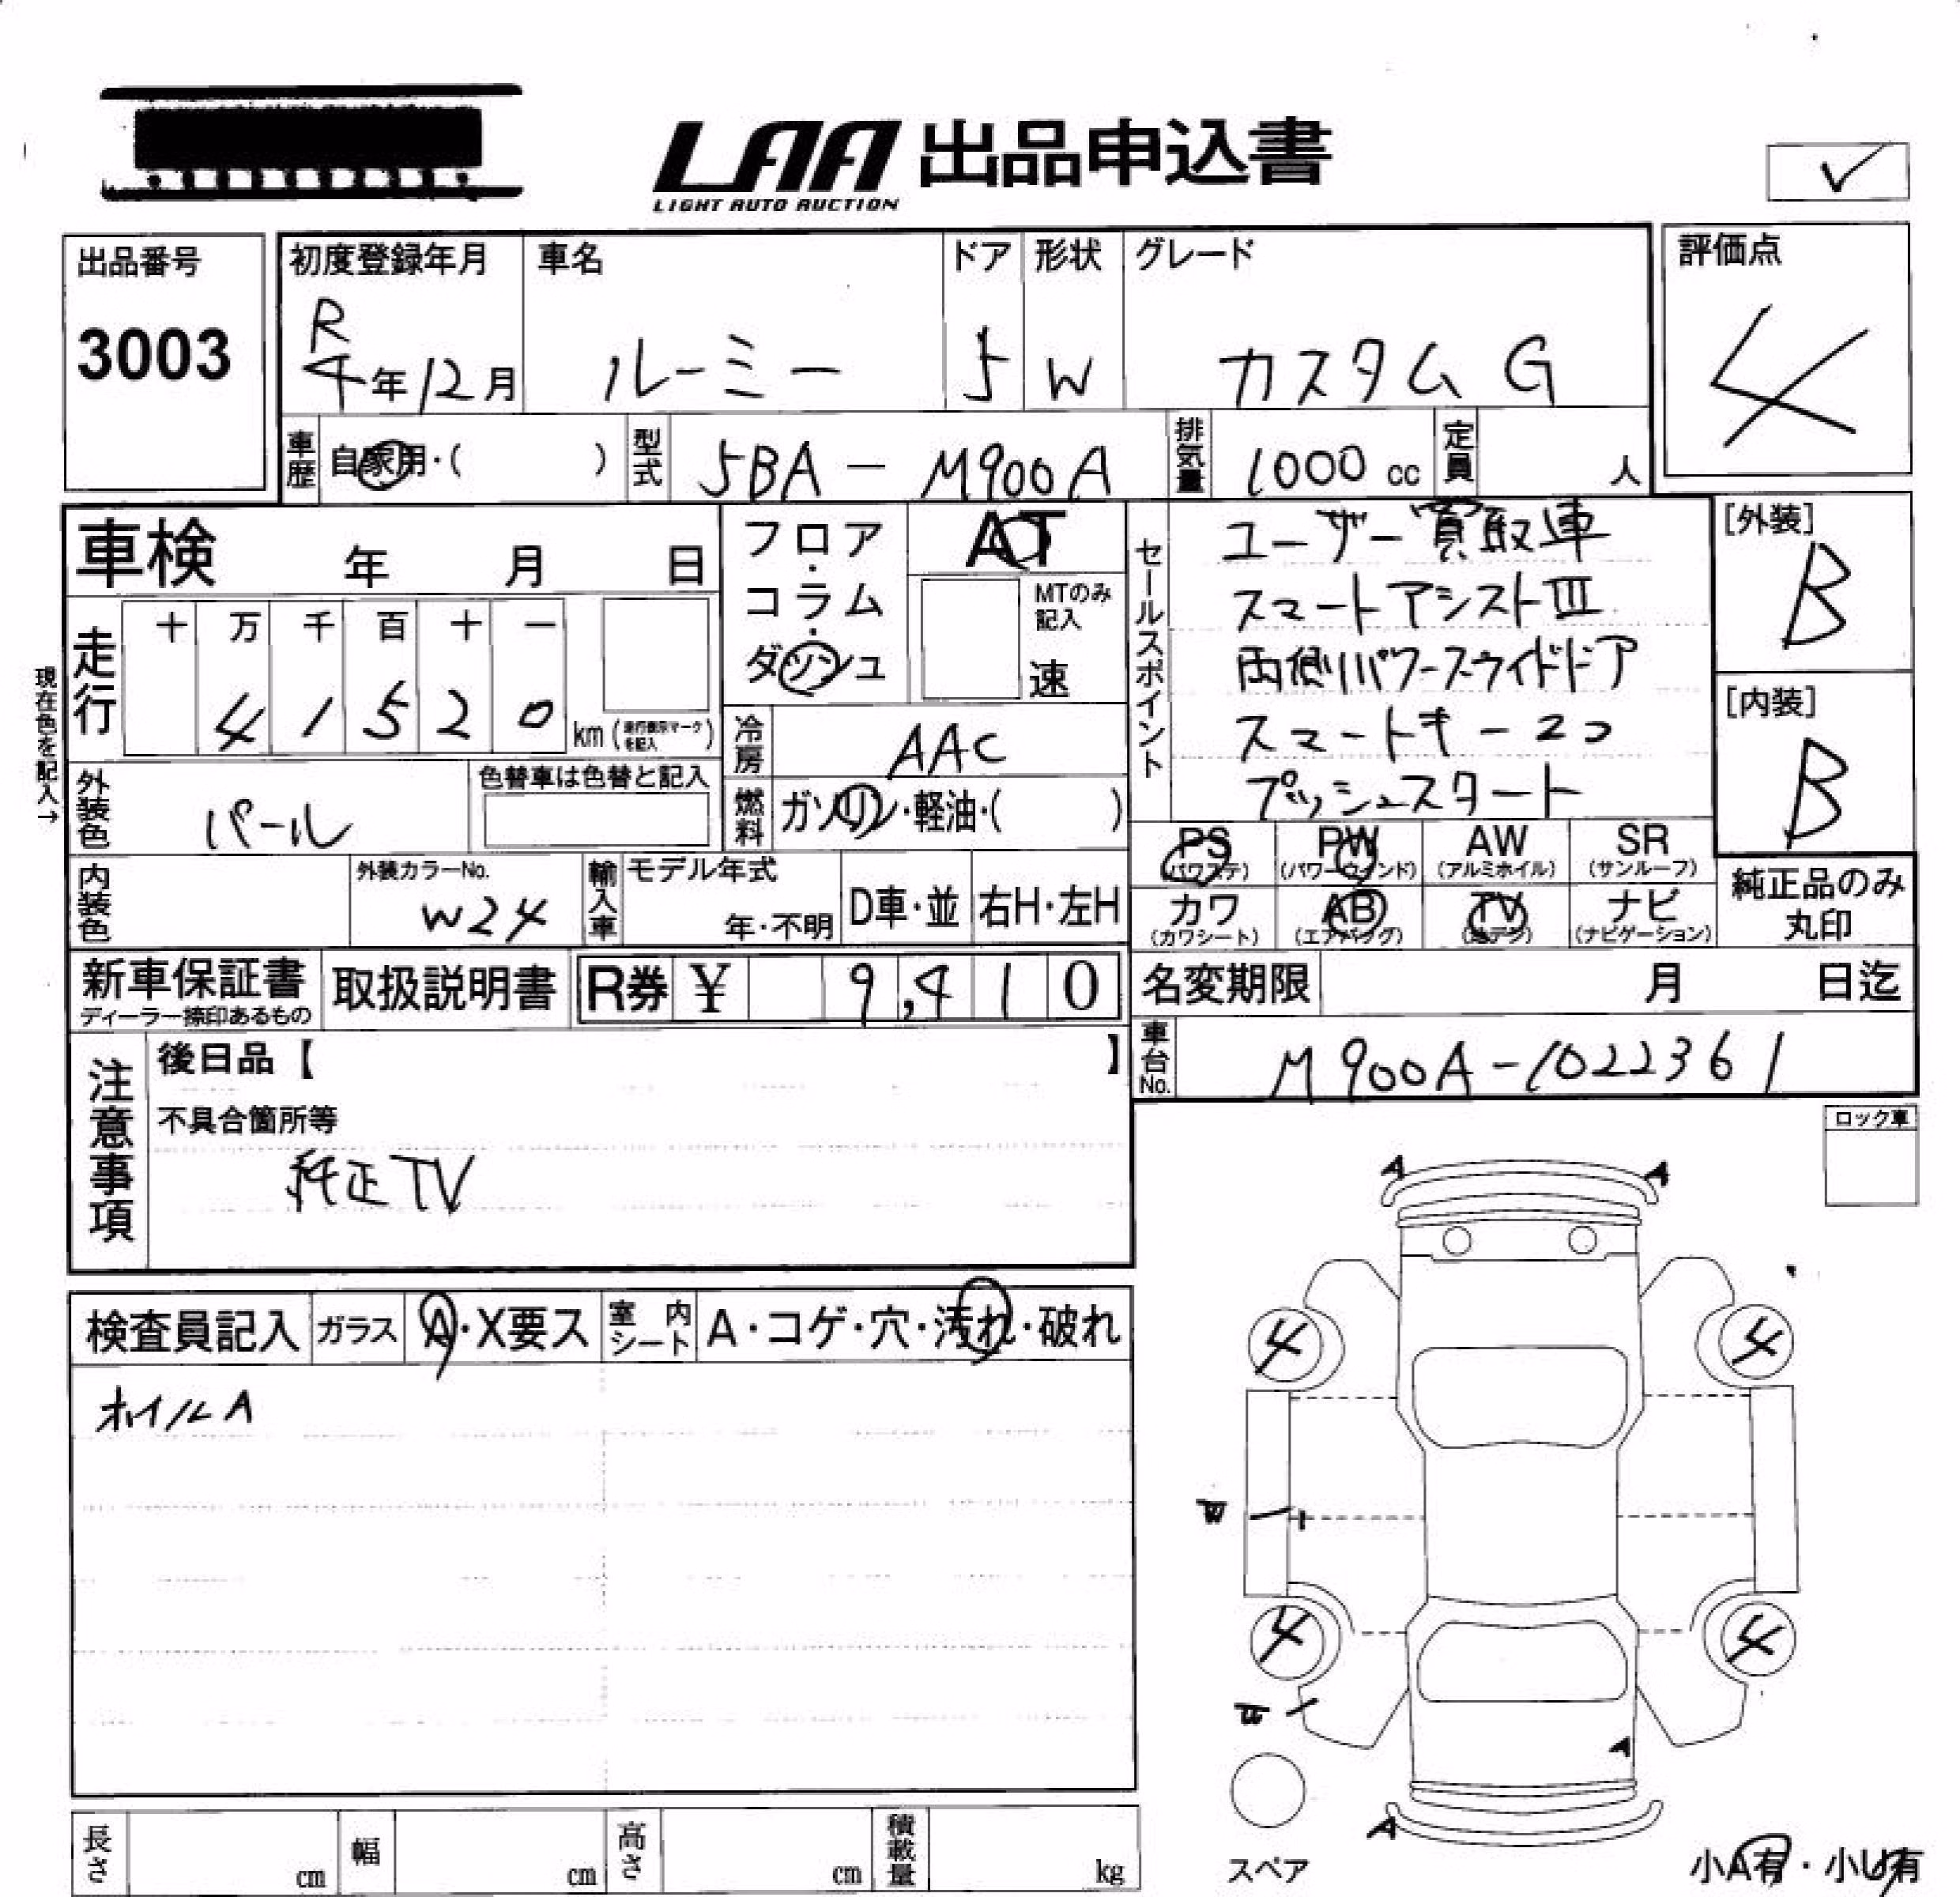 LAA 出品申込書
LIGHT AUTO AUCTION
✓
出品番号
3003
初度登録年月
R
4年12月
車名
ルーミー
ドア
5
形状
W
グレード
カスタム G
評価点
4
車歴
自家用・( )
型式
5BA - M900A
排気量
1000 cc
定員
人
車検 年 月 日
フロア・コラム・ダッシュ
AT
MTのみ記入
速
セールスポイント
ユーザー買取車
スマートアシストⅢ
両側パワースライドドア
スマートキー2コ
プッシュスタート
[外装]
B
[内装]
B
現在色を記入→
走行
十 万 千 百 十 一
4 1 5 2 0
km (走行表示マークを記入)
冷房
AAC
外装色
パール
色替車は色替と記入
燃料
ガソリン・軽油・( )
PS
(パワステ)
PW
(パワーウインド)
AW
(アルミホイル)
SR
(サンルーフ)
カワ
(カワシート)
AB
(エアバッグ)
TV
(地デジ)
ナビ
(ナビゲーション)
純正品のみ
丸印
内装色
外装カラーNo.
W24
輸入車
モデル年式
年・不明
D車・並
右H・左H
新車保証書
ディーラー捺印あるもの
取扱説明書
R券 ¥ 9,410
名変期限 月 日迄
車台No.
M900A-1022361
注意事項
後日品【 】
不具合箇所等
純正TV
ロック車
検査員記入
ガラス
A・X要ス
室内シート
A・コゲ・穴・汚れ・破れ
ホイルA
A A
4 4
4 4
A
A
スペア
小A有・小U有
長さ cm
幅 cm
高さ cm
積載量 kg